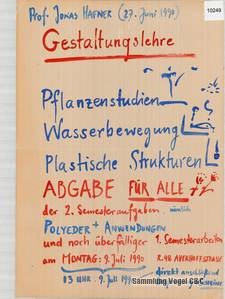 10249
Prof. Jonas Hafner (27. Juni 1990)
Gestaltungslehre
Pflanzenstudien
Wasserbewegung
Plastische Strukturen
ABGABE FÜR ALLE
der 2. Semesteraufgaben.
POLYEDER + ANWENDUNGEN
und noch überfälliger 1. Semesterarbeiten
am MONTAG: 9. Juli 1990
13 UHR. 9. Juli 1990
direkt anschließend
Sammlung Vogel C&C